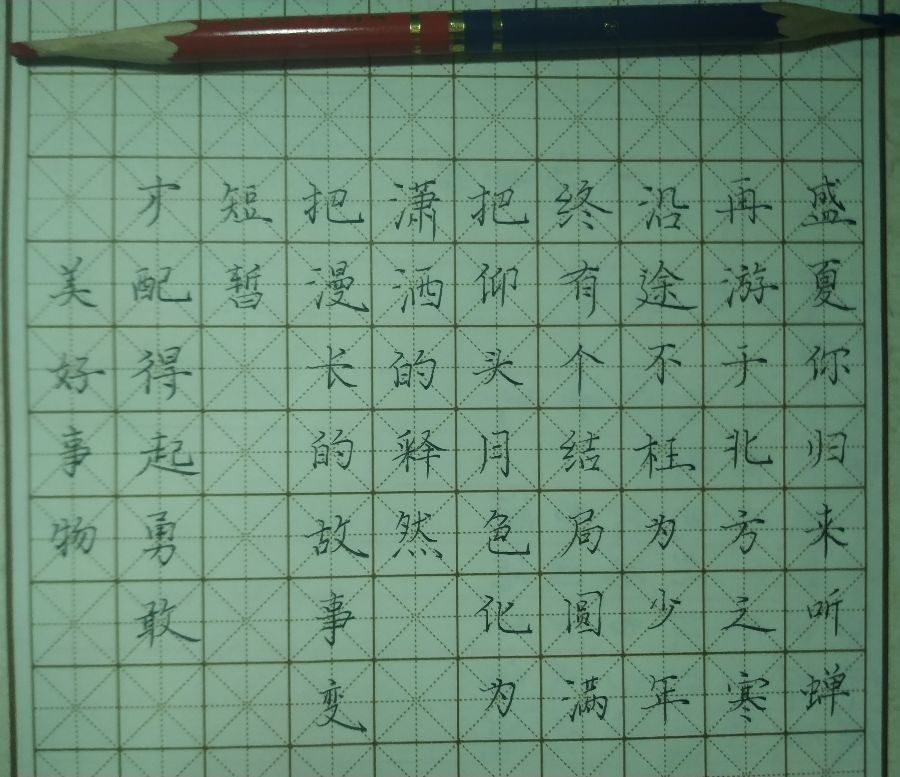 盛夏你归来听蝉
再游于北方之寒
沿途不枉为少年
终有个结局圆满
把仰头月色化为
潇洒的释然
把漫长的故事变
短暂
才配得起勇敢
美好事物